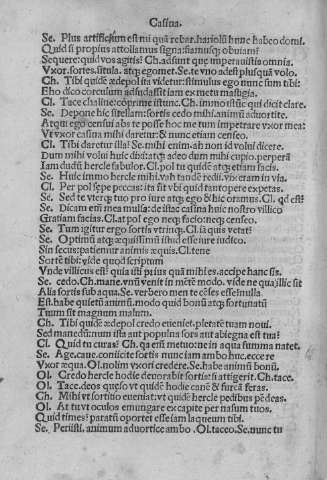 Casina.
Se. Plus artificiū est mi quā rebar. hariolū hunc habeo domi.
Quid si propius attollamus signa: eamusq; obuiam?
Sequere: quid vos agitis? Ch. adsunt que imperauisti omnia.
Vxor. sortes. situla. atq; egomet. Se. te vno adest plusquā volo.
Ch. Tibi quidē ædepol ita videtur: stimulus ego nunc sum tibi:
Eho dico corculum adsudassit iam ex metu mastigia.
Cl. Tace chaline: cōprime istunc. Ch. immo istūc qui dicit clare.
Se. Depone hic sitellam: sortis cedo mihi. animū aduortite.
Atqui ego censui abs te posse hoc me tum impetrare vxor mea:
Vt vxor casina mihi daretur: & nunc etiam censeo.
Cl. Tibi daretur illa? Se. mihi enim. ah non id volui dicere.
Dum mihi volui huic dixi: atq; adeo dum mihi cupio. perperā
Iam dudū hercle fabulor. Cl. pol tu quidē atq; etiam facis.
Se. Huic immo hercle mihi. vah tandē redii. vix eram in via.
Cl. Per pol sępe peccas: ita fit vbi quid tantopere expetas.
Se. Sed te vterq; tuo pro iure atq; ego & hic oramus. Cl. qd est?
Se. Dicam em̄ mea mulsa: de istac casina huic nostro villico
Gratiam facias. Cl. at pol ego neq; facio: neq; censeo.
Se. Tum igitur ergo sortis vtrinq;. Cl. iā quis vetat?
Se. Optimū atq; æquissimū istud esse iure iudico.
Sin secus: patiemur animis æquis. Cl. tene
Sortē tibi: vide quod scriptum
Vnde villicus est? quia isti prius quā mihi es. accipe hanc sis.
Se. cedo. Ch. mane. vnū venit in mētē modo. vide ne qua illic sit
Alia sortis sub aqua. Se. verbero men te cēses esse: nulla
Est. habe quietū animū. modo quid bonū atq; fortunatū
Tuum sit magnum malum.
Ch. Tibi quidē ædepol credo eueniet. pietatē tuam noui.
Sed manedū: num ista aut populna sors aut abiegna est tua?
Cl. Quid tu curas? Ch. qa em̄ metuo: ne in aqua summa natet.
Se. Age. caue. coniicite sortis nunc iam ambo huc. ecce re
Vxor æqua. Ol. nolim vxori credere. Se. habe animū bonū.
Ol. Credo hercle hodie deuorabit sortis: si attigerit. Ch. tace.
Ol. Tace. deos queso vt quidē hodie canē & furcā feras.
Ch. Mihi vt sortitio eueniat: vt quidē hercle pedibus pēdeas.
Ol. At tu vt oculos emungare ex capite per nasum tuos.
Quid times? paratū oportet esse iam laqueum tibi.
Se. Periisti. animum aduortice ambo. Ol. taceo. Se. nunc tu